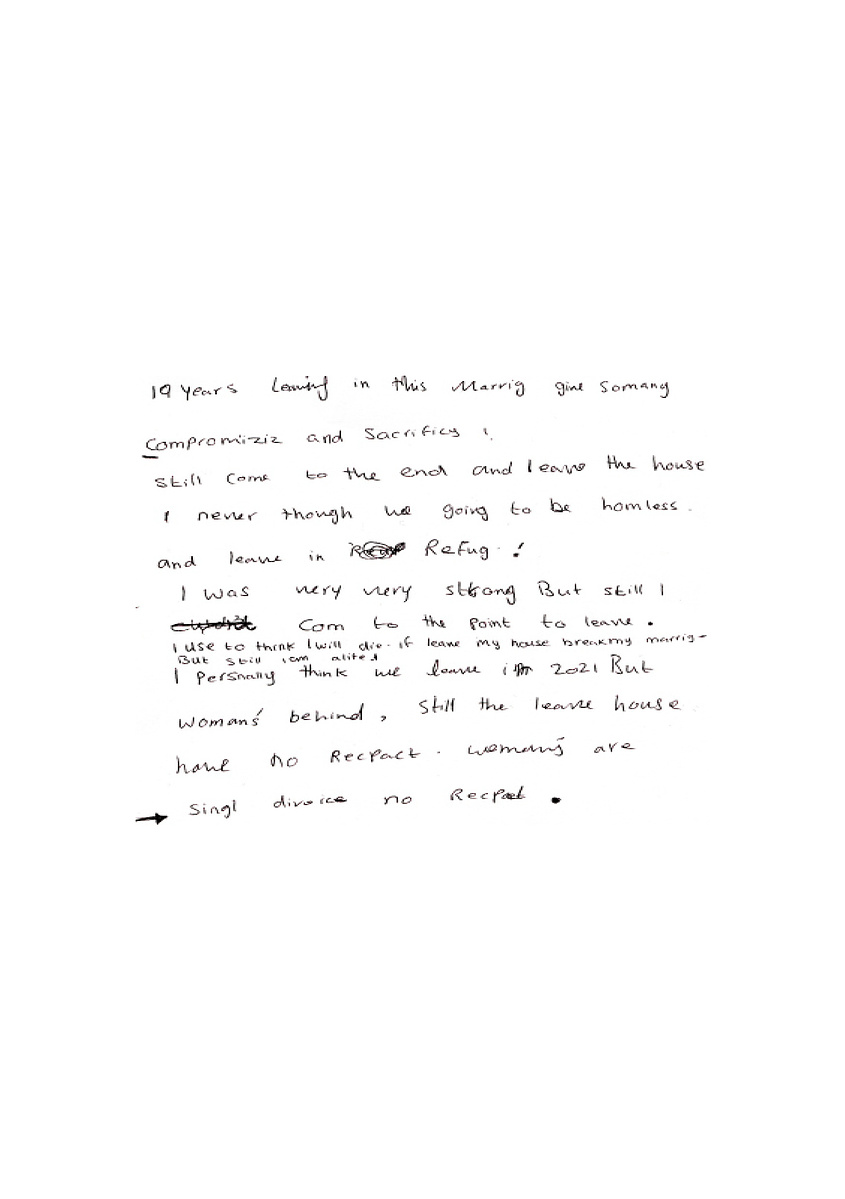 19 years leaving in this Marrig give somany
Compromiziz and Sacrificy !
Still Come to the end and leave the house
I never though we going to be homless.
and leave in Refug. !
I was very very strong But still I
Com to the point to leave.
I use to think I will die. if leave my house break my marrig-
But still iam alited
I Persnally think we leave in 2021 But
womans' behind, still the leave house
have no Recpact. womans' are
→ Singl divoice no Recpect.